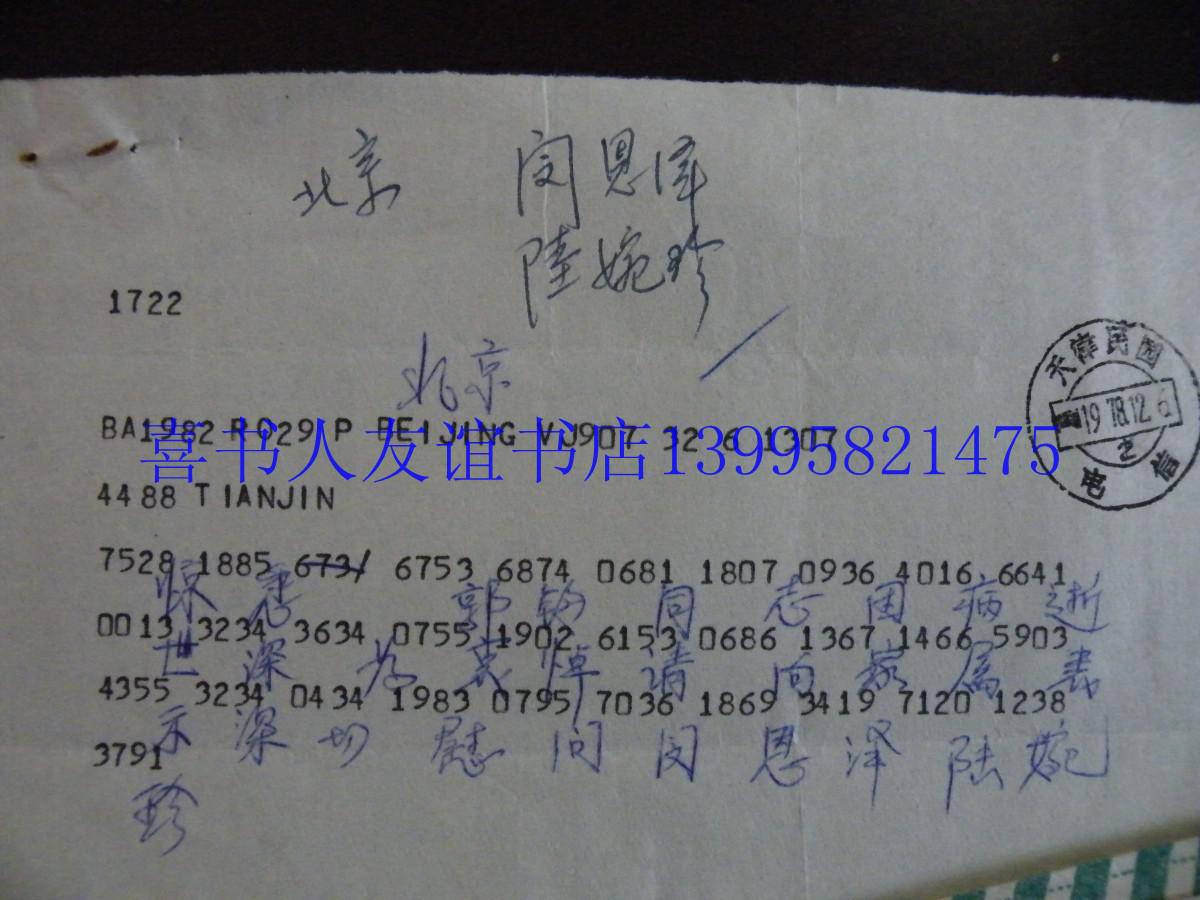 北京 闵恩泽
陆婉珍
1722
北京
BA1982 R029 P BEIJING VJ907 32 6 1307
喜书人友谊书店13995821475
4488 TIANJIN
天津民园
1978.12.6
2
电信
7528 1885 6731 6753 6874 0681 1807 0936 4016 6641
惊悉 郭钧同志因病逝
0013 3234 3634 0755 1902 6153 0686 1367 1466 5903
世深为哀悼请向家属表
4355 3234 0434 1983 0795 7036 1869 3419 7120 1238
示深切慰问闵恩泽陆婉
3791
珍